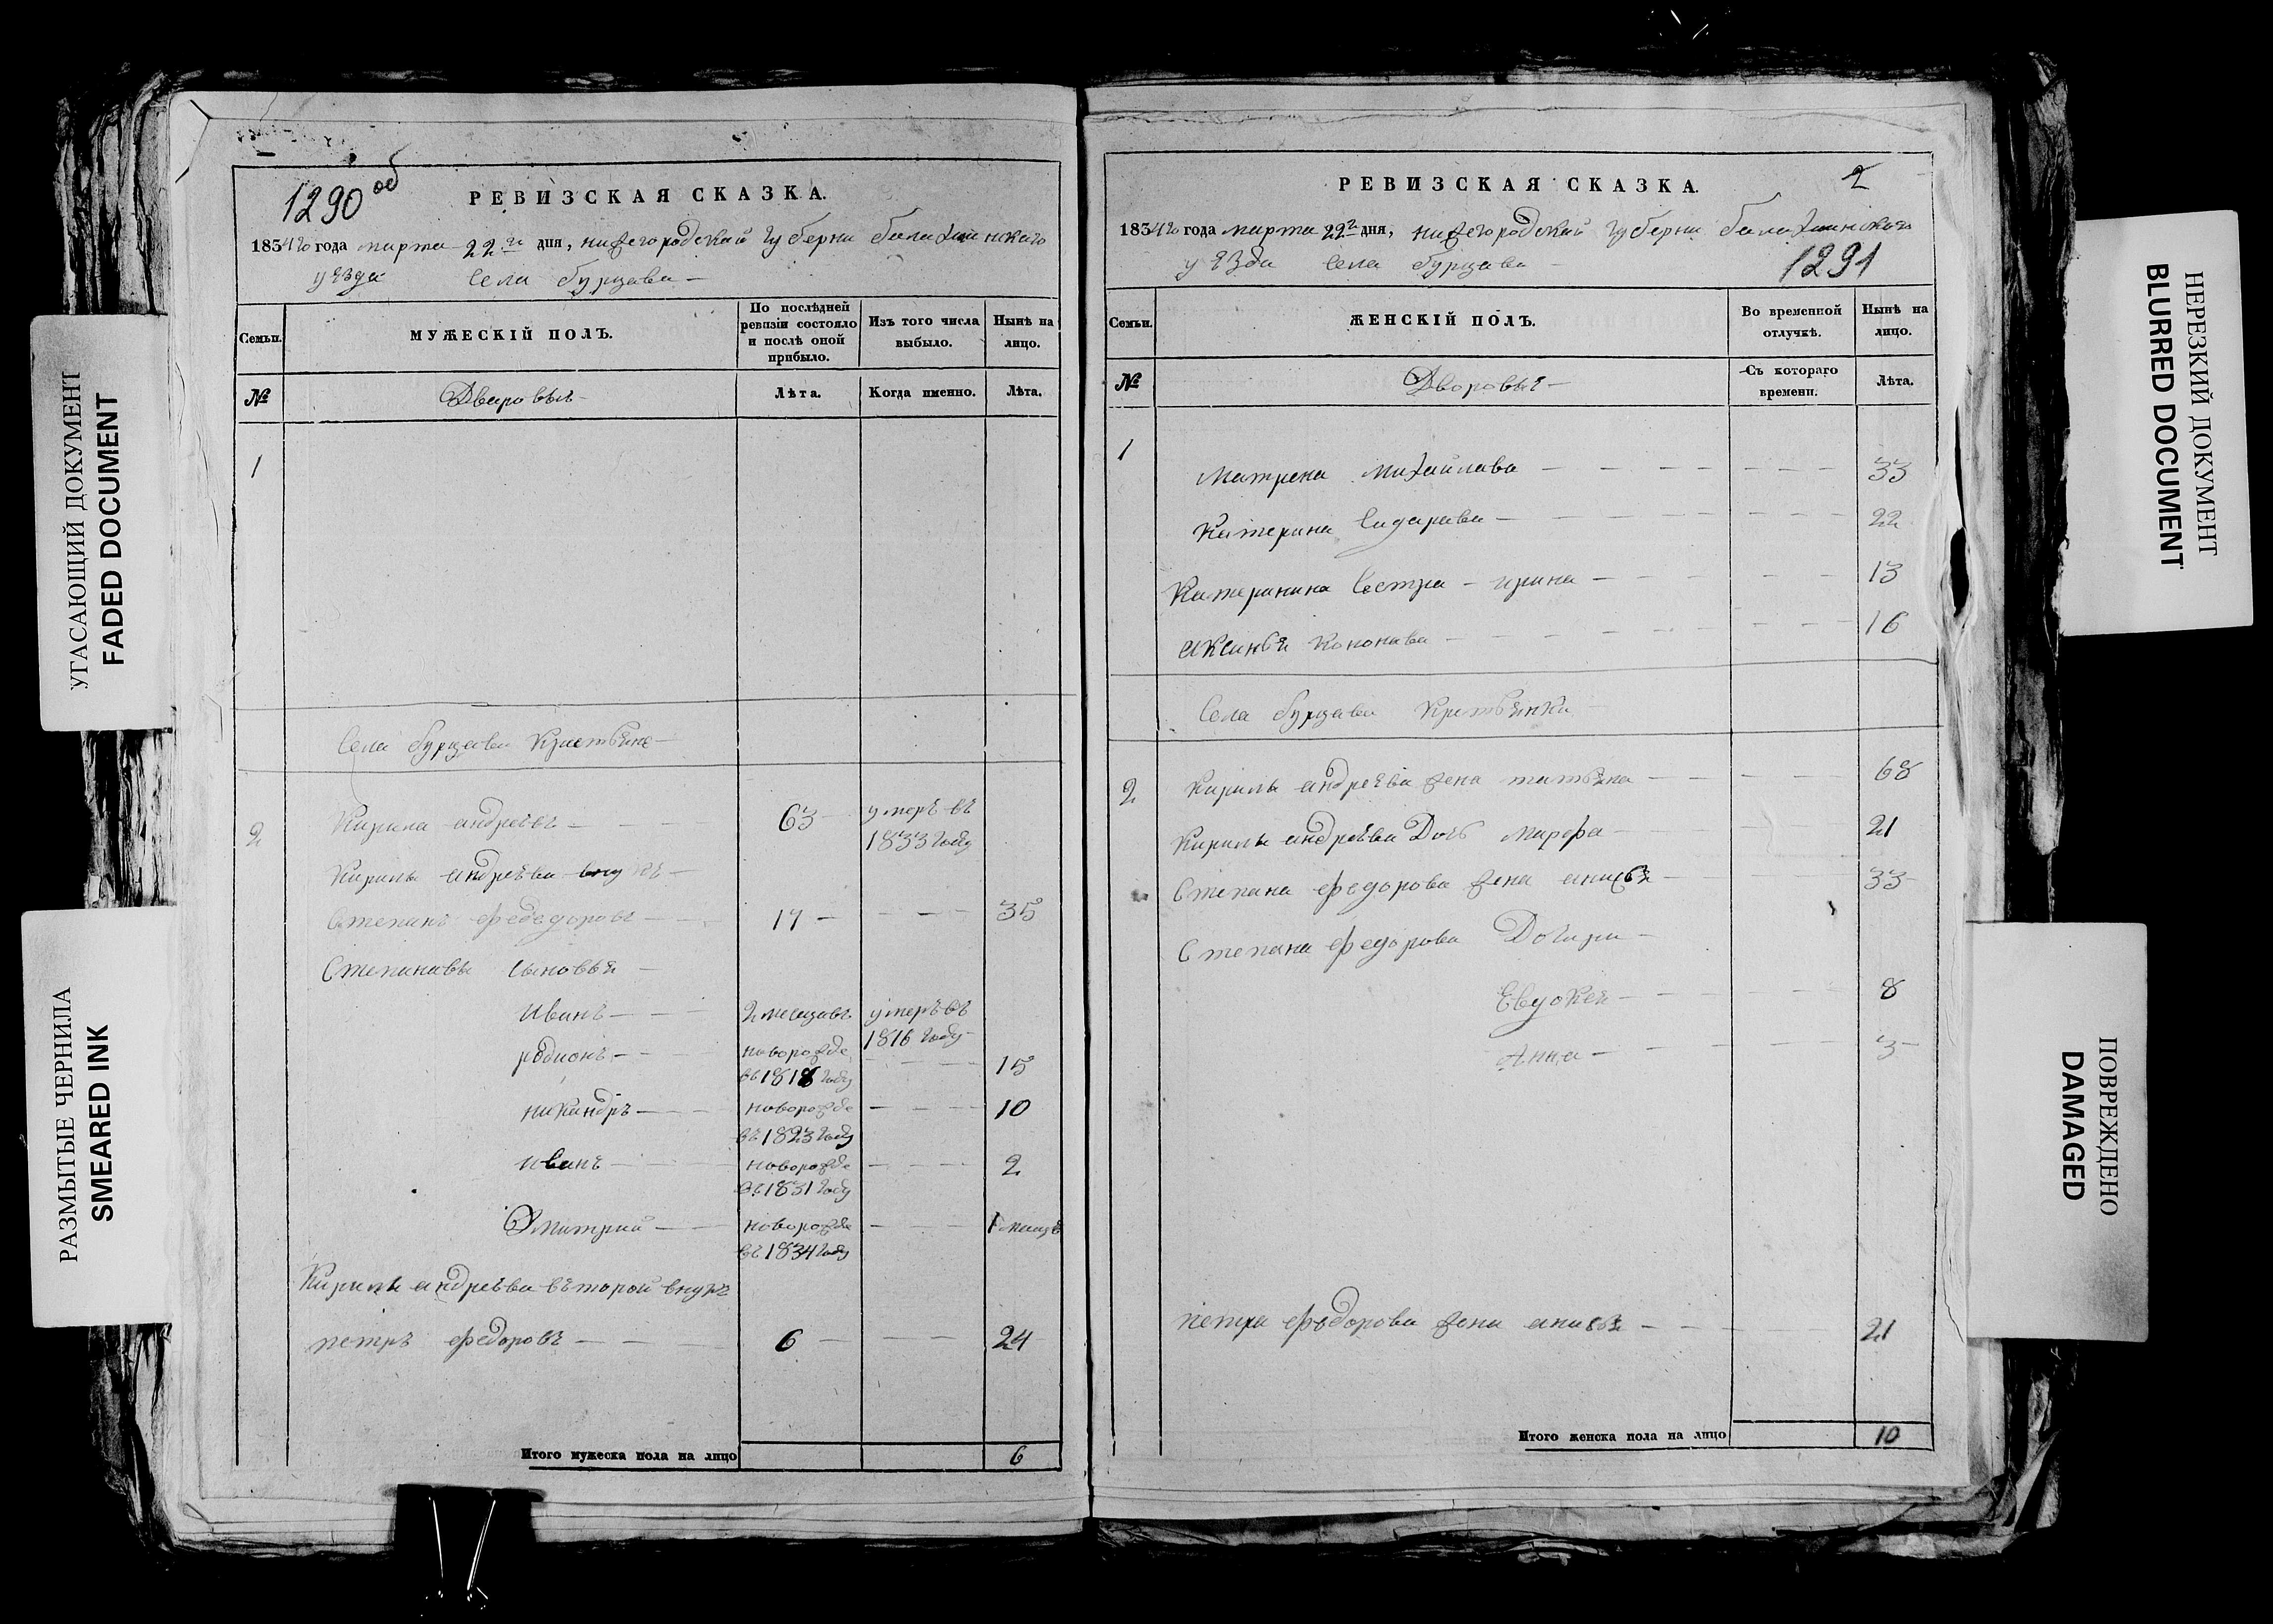 УГАСАЮЩИЙ ДОКУМЕНТ
FADED DOCUMENT
РАЗМЫТЫЕ ЧЕРНИЛА
SMEARED INK
1290 об
РЕВИЗСКАЯ СКАЗКА.
1834го года марта 22го дня, нижегородской губерни балахнинскаго
уѣзда села бурцава
Семьи.
МУЖЕСКІЙ ПОЛЪ.
По послѣдней ревизіи состояло и послѣ оной прибыло.
Изъ того числа выбыло.
Нынѣ на лицо.
№
Дваровыѣ
Лѣта.
Когда именно.
Лѣта.
1
Села бурцава Крестьяне
2
Кирила андреѣвъ 63 умеръ въ
1833 году
Кирилы андреѣва внукъ
Степанъ федедоровъ 17 35
Степанавы сыновья
иванъ 2 месецавъ умеръ въ
1816 году
родионъ новорожде 15
въ 1818 году
никандръ новорожде 10
въ 1823 году
иванъ новорожде 2
въ 1831 году
Дмитрий новорожде 1 месецъ
въ 1834 году
Кирилы андреѣва въторой внукъ
петръ федоровъ 6 24
Итого мужеска пола на лицо 6
РЕВИЗСКАЯ СКАЗКА.
2
1834го года марта 22го дня, нижегородской губерни балахнинскаго
уѣзда села бурцава
1291
Семьи.
ЖЕНСКІЙ ПОЛЪ.
Во временной отлучкѣ.
Нынѣ на лицо.
№
Дворовыѣ
Съ котораго времени.
Лѣта.
1
Матрена михайлава 33
Катерина Сидарава 22
Катеринина Сестра ирина 13
аксинья кононава 16
Села бурцава Кретьянки
2
Кирилы андреѣва жена татьяна 68
Кирилы андреѣва Дочь марфа 21
Степана федорова жена анисья 33
Степана федорова Дочири
Евдокея 8
Анна 3
петра федорова жена анисья 21
Итого женска пола на лицо 10
НЕРЕЗКИЙ ДОКУМЕНТ
BLURRED DOCUMENT
ПОВРЕЖДЕНО
DAMAGED